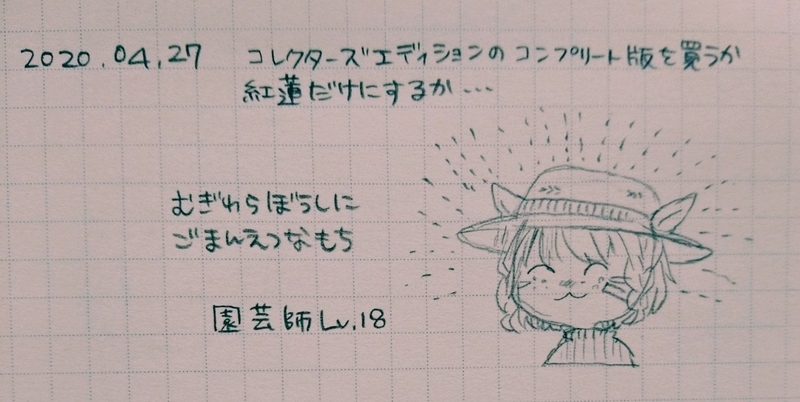 2020.04.27 コレクターズエディションのコンプリート版を買うか
紅蓮だけにするか…
むぎわらぼうしに
ごまんえつなもち
園芸師Lv.18